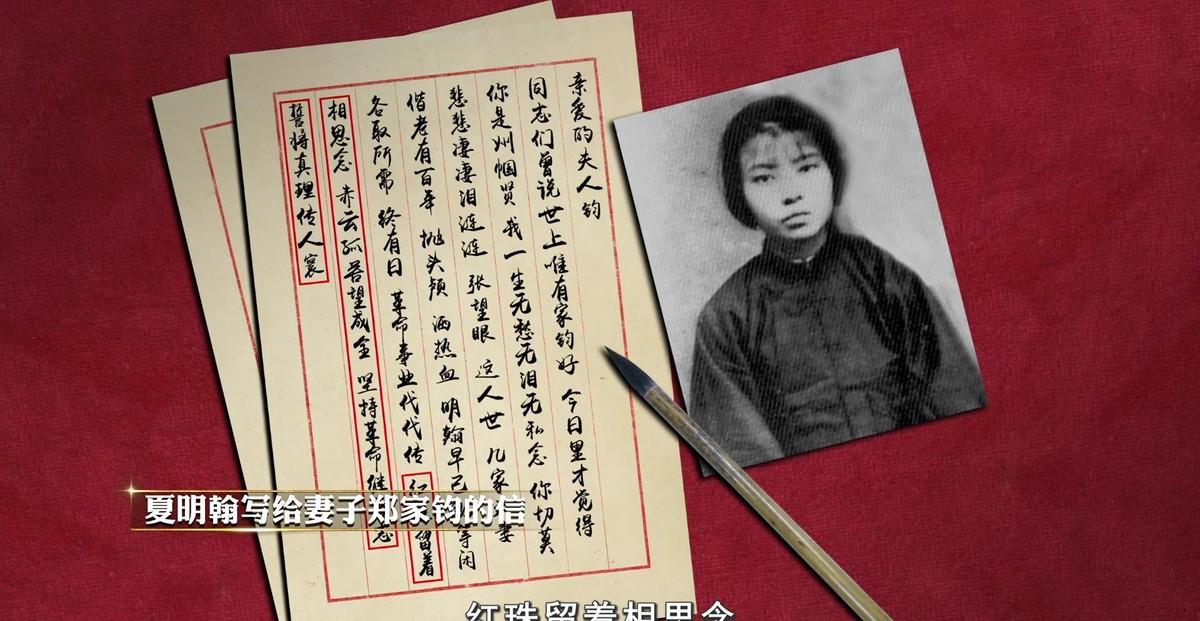 亲爱的夫人钧
同志们曾说世上唯有家钧好 今日里才觉得
你是巾帼贤 我一生无愁无泪无私念 你切莫
悲悲凄凄泪涟涟 张望眼 这人世 几家妻
偕老有百年 抛头颅 洒热血 明翰早已等闲
各取所需 终有日 革命事业代代传 红留着
相思念 赤云孤苦望成全 坚持革命继志
誓将真理传人寰
夏明翰写给妻子郑家钧的信
红珠留着相思念